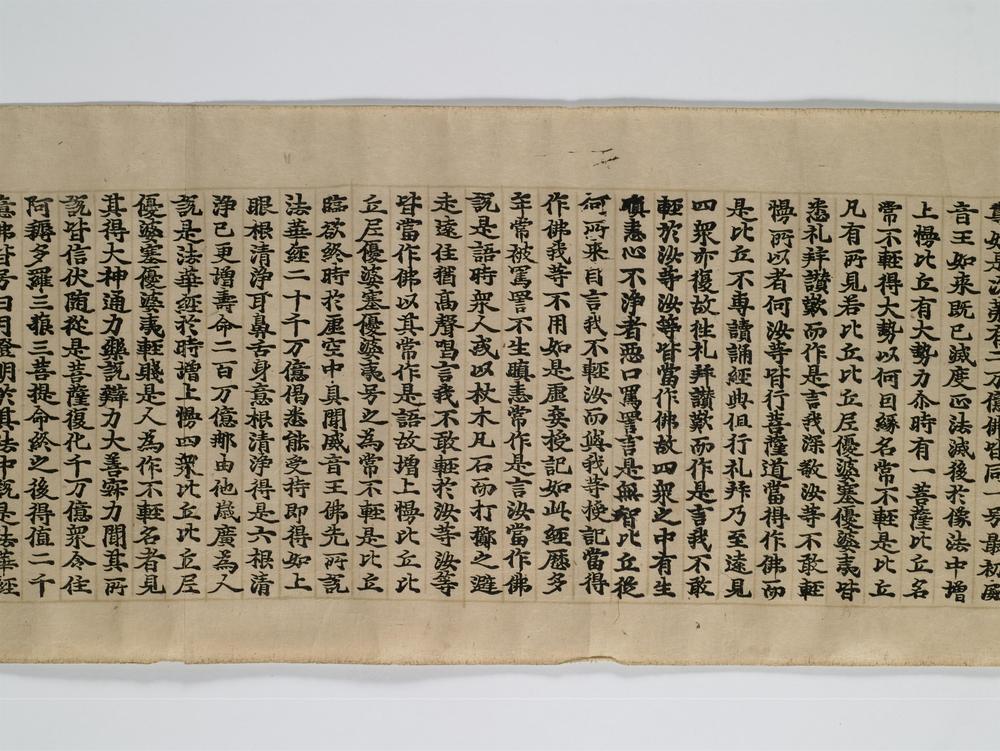 如是次第有二万億佛皆同一号最初威
音王如来既已滅度正法滅後於像法中增
上慢比丘有大勢力尒時有一菩薩比丘名
常不輕得大勢以何因緣名常不輕是比丘
凡有所見若比丘比丘尼優婆塞優婆夷皆
悉礼拜讃歎而作是言我深敬汝等不敢輕
慢所以者何汝等皆行菩薩道當得作佛而
是比丘不專讀誦經典但行礼拜乃至遠見
四眾亦復故往礼拜讃歎而作是言我不敢
輕於汝等汝等皆當作佛故四眾之中有生
瞋恚心不淨者惡口罵詈言是無智比丘從
何所来自言我不輕汝而與我等授記當得
作佛我等不用如是虛妄授記如此經歷多
年常被罵詈不生瞋恚常作是言汝當作佛
說是語時眾人或以杖木凡石而打擲之避
走遠住猶高聲唱言我不敢輕於汝等汝等
皆當作佛以其常作是語故增上慢比丘比
丘尼優婆塞優婆夷号之為常不輕是比丘
臨欲終時於虛空中具聞威音王佛先所說
法華經二十千万億偈悉能受持即得如上
眼根清淨耳鼻舌身意根清淨得是六根清
淨已更增壽命二百万億那由他歲廣為人
說是法華經於時增上慢四眾比丘比丘尼
優婆塞優婆夷輕賤是人為作不輕名者見
其得大神通力樂說辯力大善寂力聞其所
說皆信伏随從是菩薩復化千万億眾令住
阿耨多羅三藐三菩提命終之後得值二千
億佛皆号日月燈明於其法中說是法華經